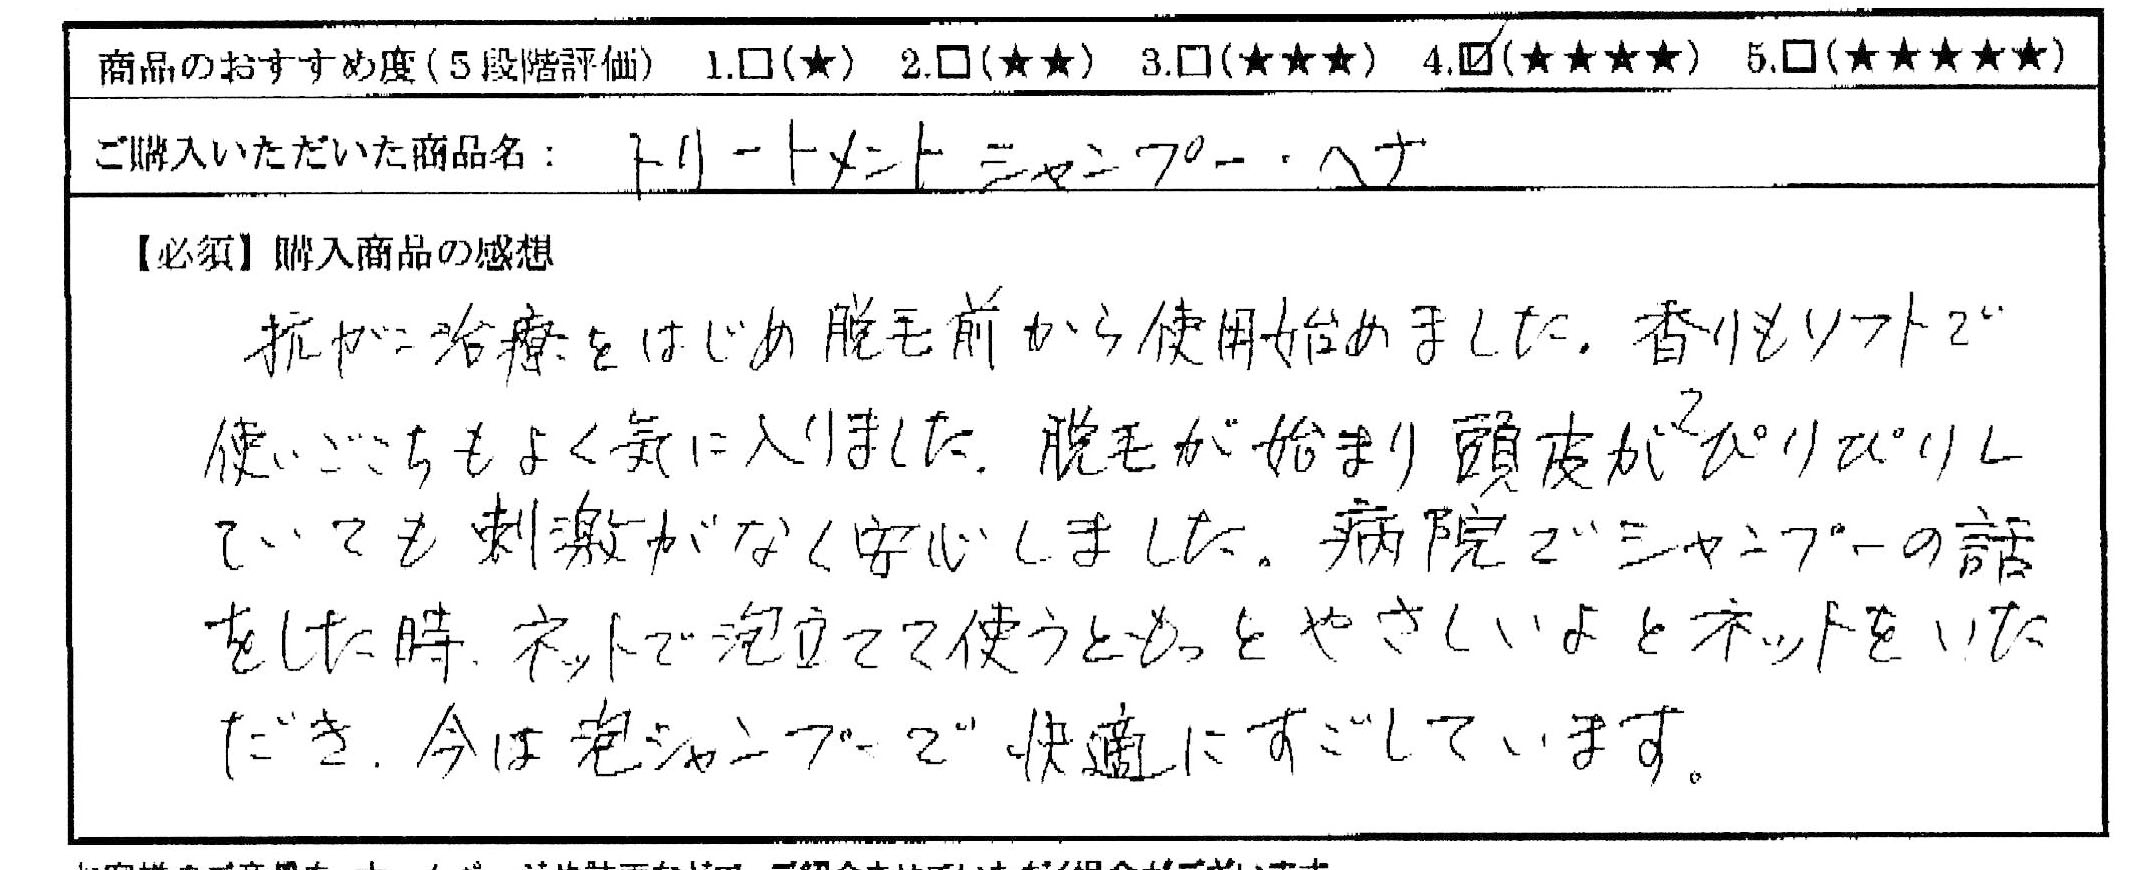 商品のおすすめ度(5段階評価) 1.□(★) 2.□(★★) 3.□(★★★) 4.☑(★★★★) 5.□(★★★★★)
ご購入いただいた商品名: トリートメントシャンプー・ヘナ
【必須】購入商品の感想
抗がン治療をはじめ脱毛前から使用始めました。香りもソフトで
使いごこちもよく気に入りました。脱毛が始まり頭皮がぴりぴりし
ていても刺激がなく安心しました。病院でシャンプーの話
をした時、ネットで泡立てて使うともっとやさしいよとネットをいた
だき、今は泡シャンプーで快適にすごしています。